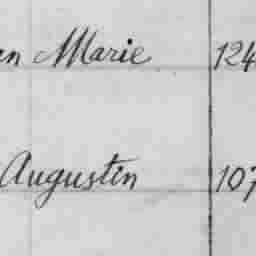 an Marie 124
Augustin 107